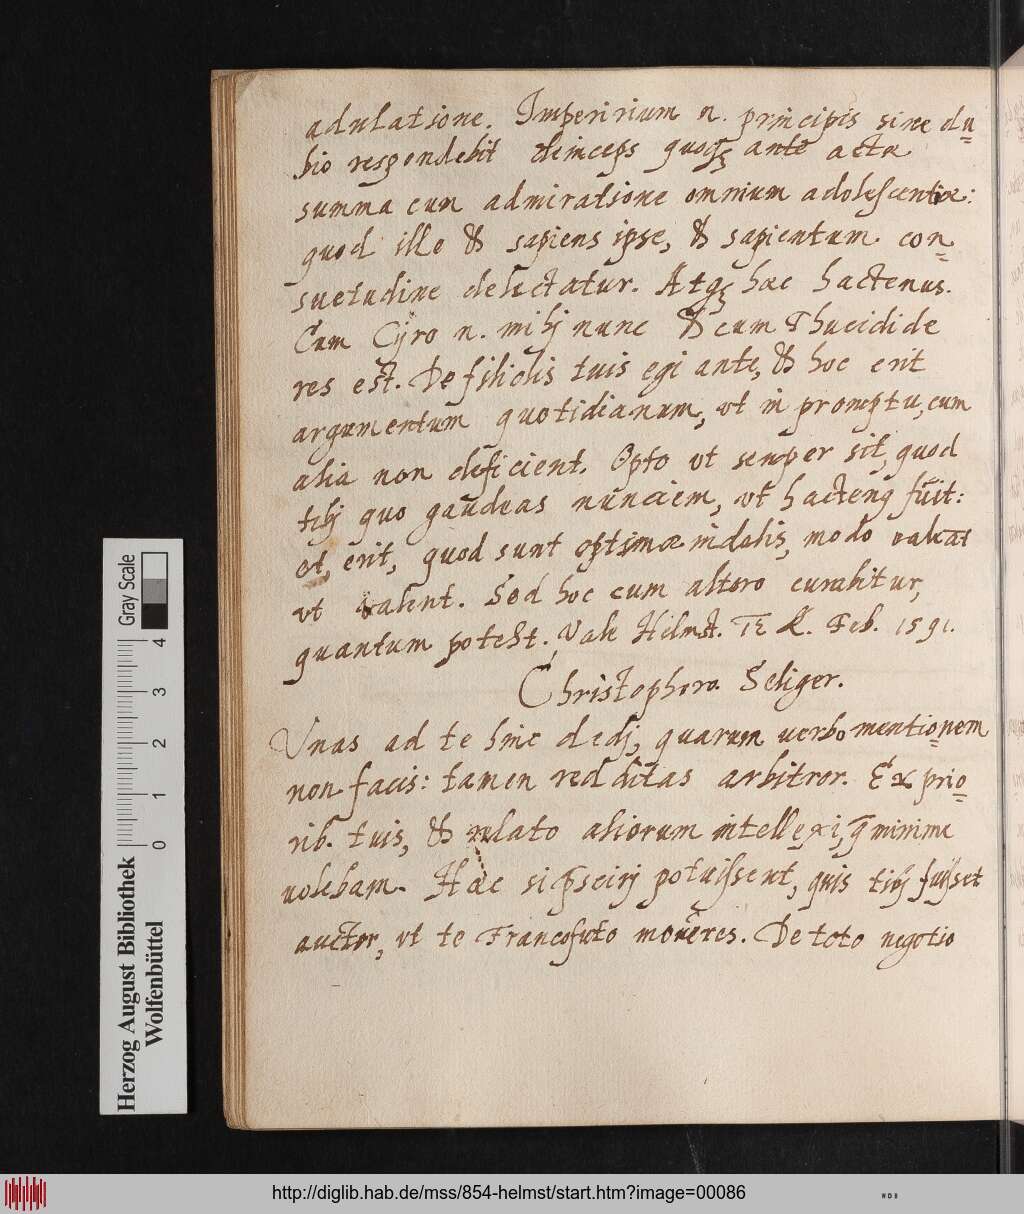 adulatione. Imperirium n. principis sine du=
bio respondebit deinceps quoqꝫ ante actæ
summa cum admiratione omnium adolescentiæ:
quod ille & sapiens ipse, & sapientum con=
suetudine delectatur. Atqꝫ hæc hactenus.
Cum Cyro n. mihj nunc & cum Thucidide
res est. De filiolis tuis egi ante, & hoc erit
argumentum quotidianum, vt in promptu, cum
alia non deficient. Opto vt semper sit, quod
tibj quo gaudeas nunciem, vt hacteng fuit:
et, erit, quod sunt optimæ indolis, modo valeat
vt valent. Sed hoc cum altero curabitur,
quantum potest. Vale Helmst. IƐ K. Feb. 1591.
Christophoro Seliger.
Vnas ad te hinc dedj, quarum verbo mentionem
non facis: tamen redditas arbitror. Ex prio=
rib. tuis, & relato aliorum intellexi, q̄ minime
uolebam. Hæc si p̱scirj potuissent, quis tibj fuisset
auctor, vt te Francofuto moueres. De toto negotio
Herzog August Bibliothek
Wolfenbüttel
Gray Scale
0 1 2 3 4
http://diglib.hab.de/mss/854-helmst/start.htm?image=00086
WDB